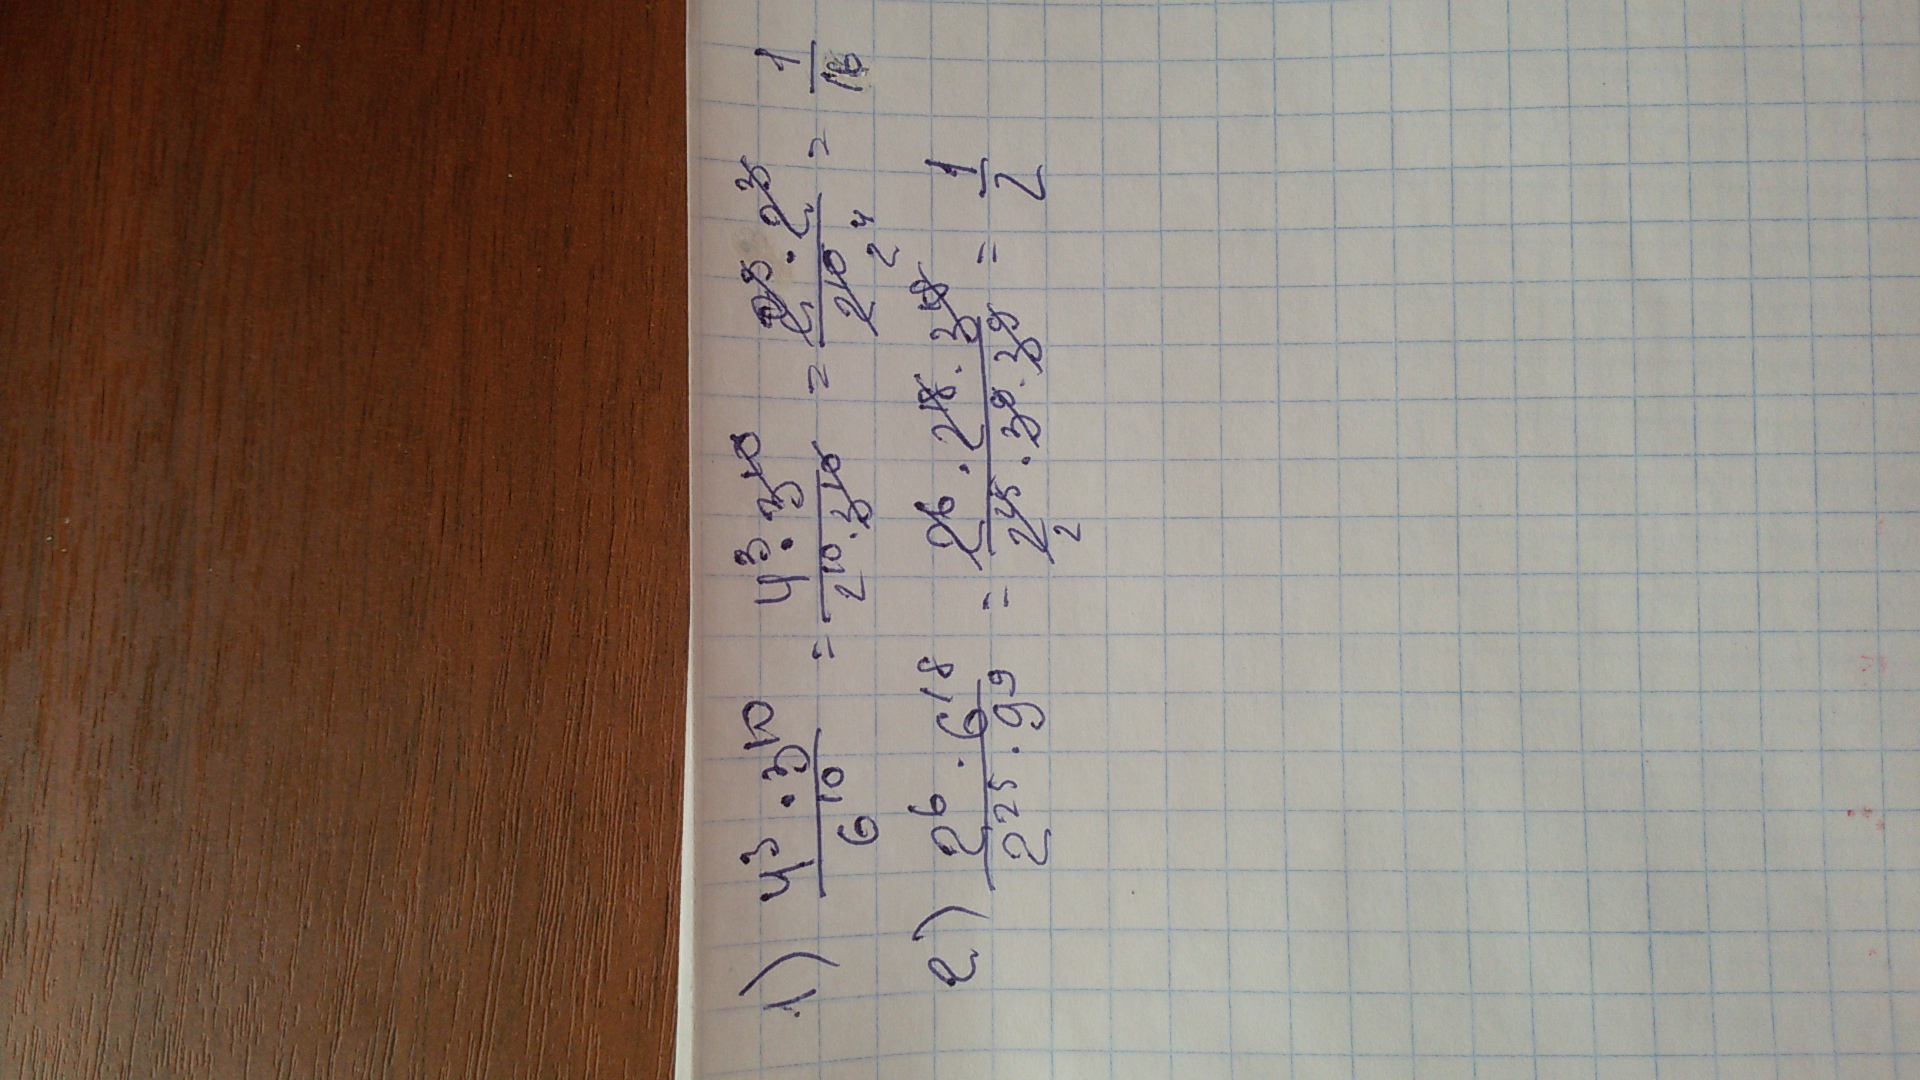 1) (4³ · 3¹⁰)/(6¹⁰) = (4³ · 3¹⁰)/(2¹⁰ · 3¹⁰) = (2³ · 2³)/(2¹⁰ 2⁴) = 1/16
2) (2⁶ · 6¹⁸)/(2²⁵ · 9⁹) = (2⁶ · 2¹⁸ · 3¹⁸)/(2²⁵ 2 · 3⁹ · 3⁹) = 1/2